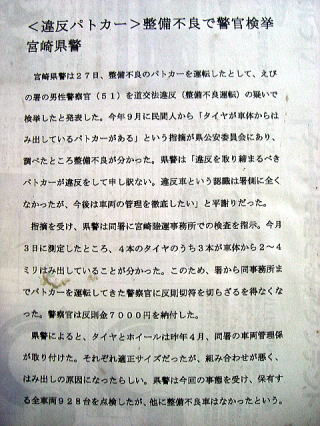 ＜違反パトカー＞整備不良で警官検挙
宮崎県警
宮崎県警は２７日、整備不良のパトカーを運転したとして、えび
の署の男性警察官（５１）を道交法違反（整備不良運転）の疑いで
検挙したと発表した。今年９月に民間人から「タイヤが車体からは
み出しているパトカーがある」という指摘が県公安委員会にあり、
調べたところ整備不良が分かった。県警は「違反を取り締まるべき
パトカーが違反をして申し訳ない。違反車という認識は署側に全く
なかったが、今後は車両の管理を徹底したい」と平謝りだった。
指摘を受け、県警は同署に宮崎陸運事務所での検査を指示。今月
３日に測定したところ、４本のタイヤのうち３本が車体から２〜４
ミリはみ出していることが分かった。このため、署から同事務所ま
でパトカーを運転してきた警察官に反則切符を切らざるを得なくな
った。警察官は反則金７０００円を納付した。
県警によると、タイヤとホイールは昨年４月、同署の車両管理係
が取り付けた。それぞれ適正サイズだったが、組み合わせが悪く、
はみ出しの原因になったらしい。県警は今回の事態を受け、保有す
る全車両９２８台を点検したが、他に整備不良車はなかったという。